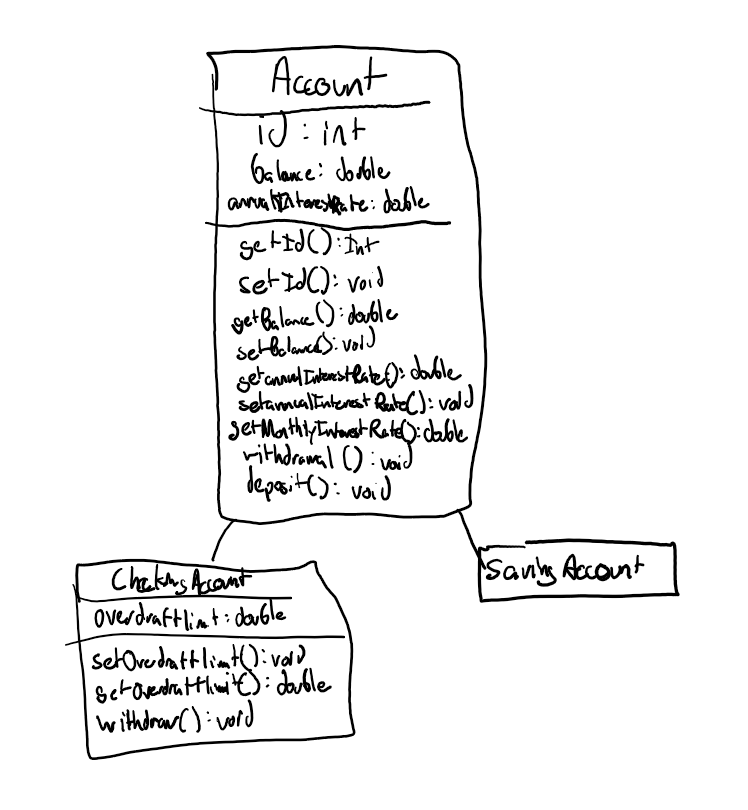 Account
id : int
balance: double
annualInterestRate: double
getId() : Int
setId(): void
getBalance(): double
setBalance(): void
getannualInterestRate(): double
setannualInterestRate(): void
getMonthlyInterestRate(): double
withdrawal (): void
deposit(): void
Checking Account
overdraftlimt: double
setOverdraftlimt(): void
getOverdraftlimit(): double
withdraw(): void
Saving Account